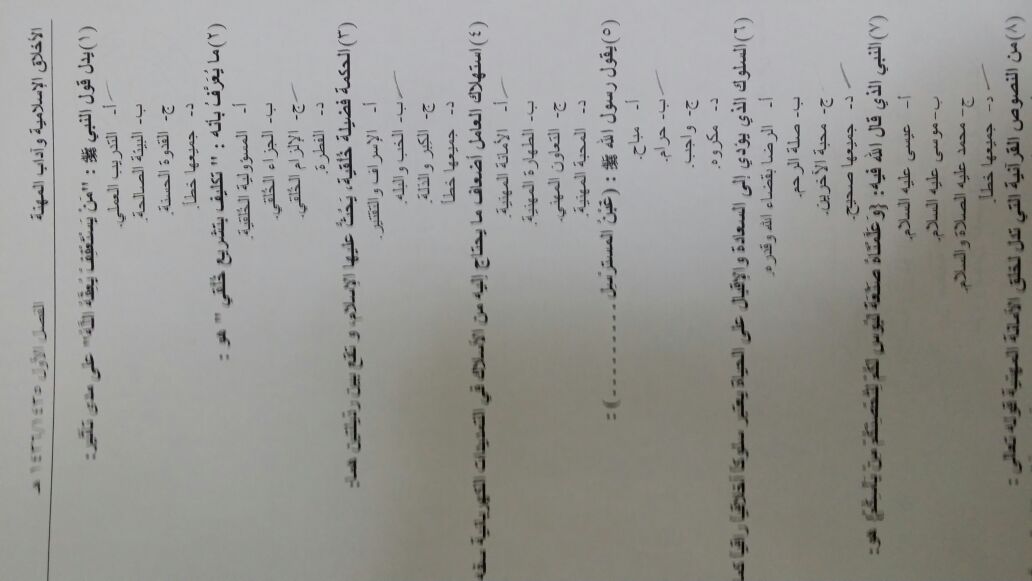 الأخلاق الإسلامية وآداب المهنة الفصل الأول ١٤٣٦/١٤٣٥ هـ
(١) يدل قول النبي ﷺ : "مَنْ يَسْتَعْفِفْ يُعِفَّهُ اللَّهُ" على مدى تأثير :
أ- التدريب العملي.
ب- البيئة الصالحة.
ج- القدوة الحسنة.
د- جميعها خطأ.
(٢) ما يُعَرَّفُ بأنه : " تكليف بتشريع خُلُقي " هو :
أ- المسؤولية الخلقية.
ب- الجزاء الخُلقي.
ج- الإلزام الخُلقي.
د- الفطرة.
(٣) الحكمة فضيلة خلقية، يَحُثُّ عليها الإسلام، و تقع بين رذيلتين هما:
أ- الإسراف والتقتير.
ب- الخب والبله.
ج- الكبر والذلة.
د- جميعها خطأ.
(٤) استهلاك العامل أضعاف ما يحتاج إليه من الأسلاك في التمديدات الكهربائية
أ- الأمانة المهنية.
ب- الطهارة المهنية.
ج- التعاون المهني.
د- المحبة المهنية.
(٥) يقول رسول الله ﷺ : (غَبْنُ المسترسل ..........) :
أ- مباح.
ب- حرام.
ج- واجب.
د- مكروه.
(٦) السلوك الذي يؤدي إلى السعادة والإقبال على الحياة يعتبر سلوكا أخلاقيا راقيا
أ- الرضا بقضاء الله وقدره.
ب- صلة الرحم.
ج- محبة الآخرين.
د- جميعها صحيح.
(٧) النبي الذي قال الله فيه: {وَعَلَّمْنَاهُ صَنْعَةَ لَبُوسٍ لَكُمْ لِتُحْصِنَكُمْ مِنْ بَأْسِكُمْ} هو:
أ- عيسى عليه السلام.
ب- موسى عليه السلام.
ج- محمد عليه الصلاة والسلام.
د- جميعها خطأ.
(٨) من النصوص القرآنية التي تدل لخلق الأمانة المهنية قوله تعالى :